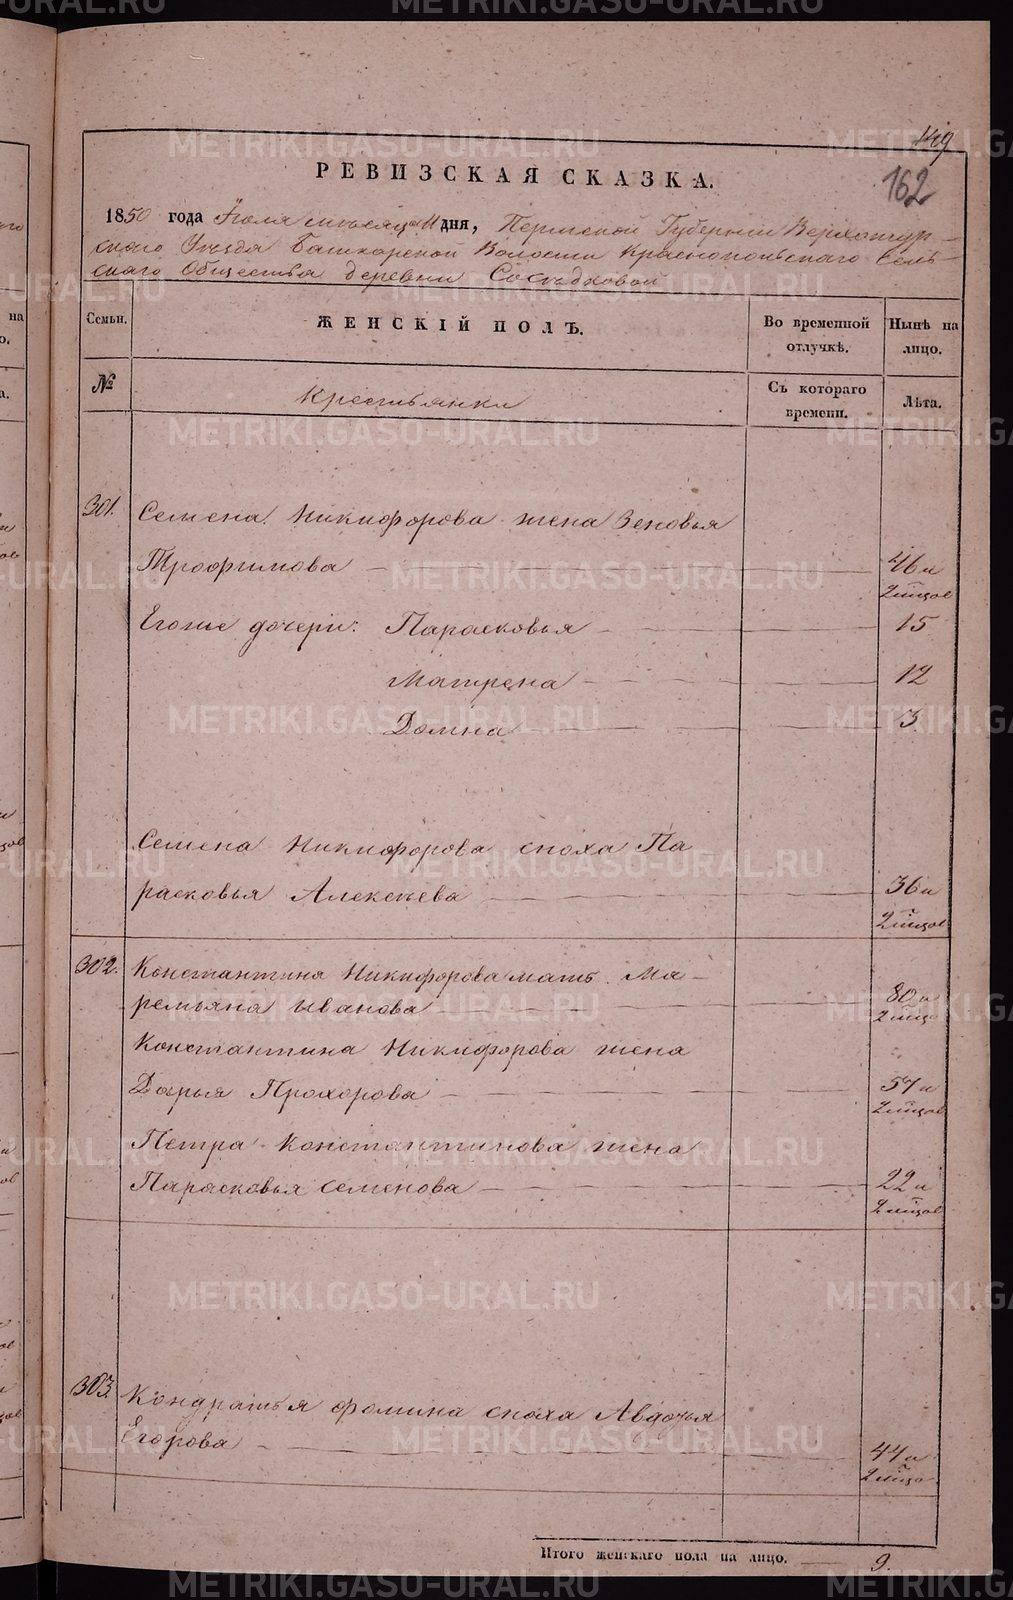 METRIKI.GASO-URAL.RU
149
162
РЕВИЗСКАЯ СКАЗКА.
1850 года Іюля месяца 11 дня, Пермской Губерніи Верхотур-
скаго Уезда Башкарской Волости Краснопольскаго Сель-
скаго Общества деревни Соседковой
Семьи.
ЖЕНСКІЙ ПОЛЪ.
Во временной отлучкѣ.
Нынѣ на лицо.
№
Крестьянки
Съ котораго времени.
Лѣта.
301. Семена Никифорова жена Зеновья
Трофимова — 46 и
2 м-цов
Егоже дочери: Парасковья — 15
Матрена — 12
Домна — 3
Семена Никифорова сноха Па
расковья Алексеева — 36 и
2 м-цов
302. Константина Никифорова мать Ма-
ремьяна Иванова — 80 и
2 м-цо
Константина Никифорова жена
Дарья Прохорова — 57 и
2 м-цов
Петра Константинова жена
Парасковья Семенова — 22 и
2 м-цов
303. Кондратья Фомина сноха Авдотья
Егорова — 44 и
2 м-цо
Итого женскаго пола на лицо. — 9.